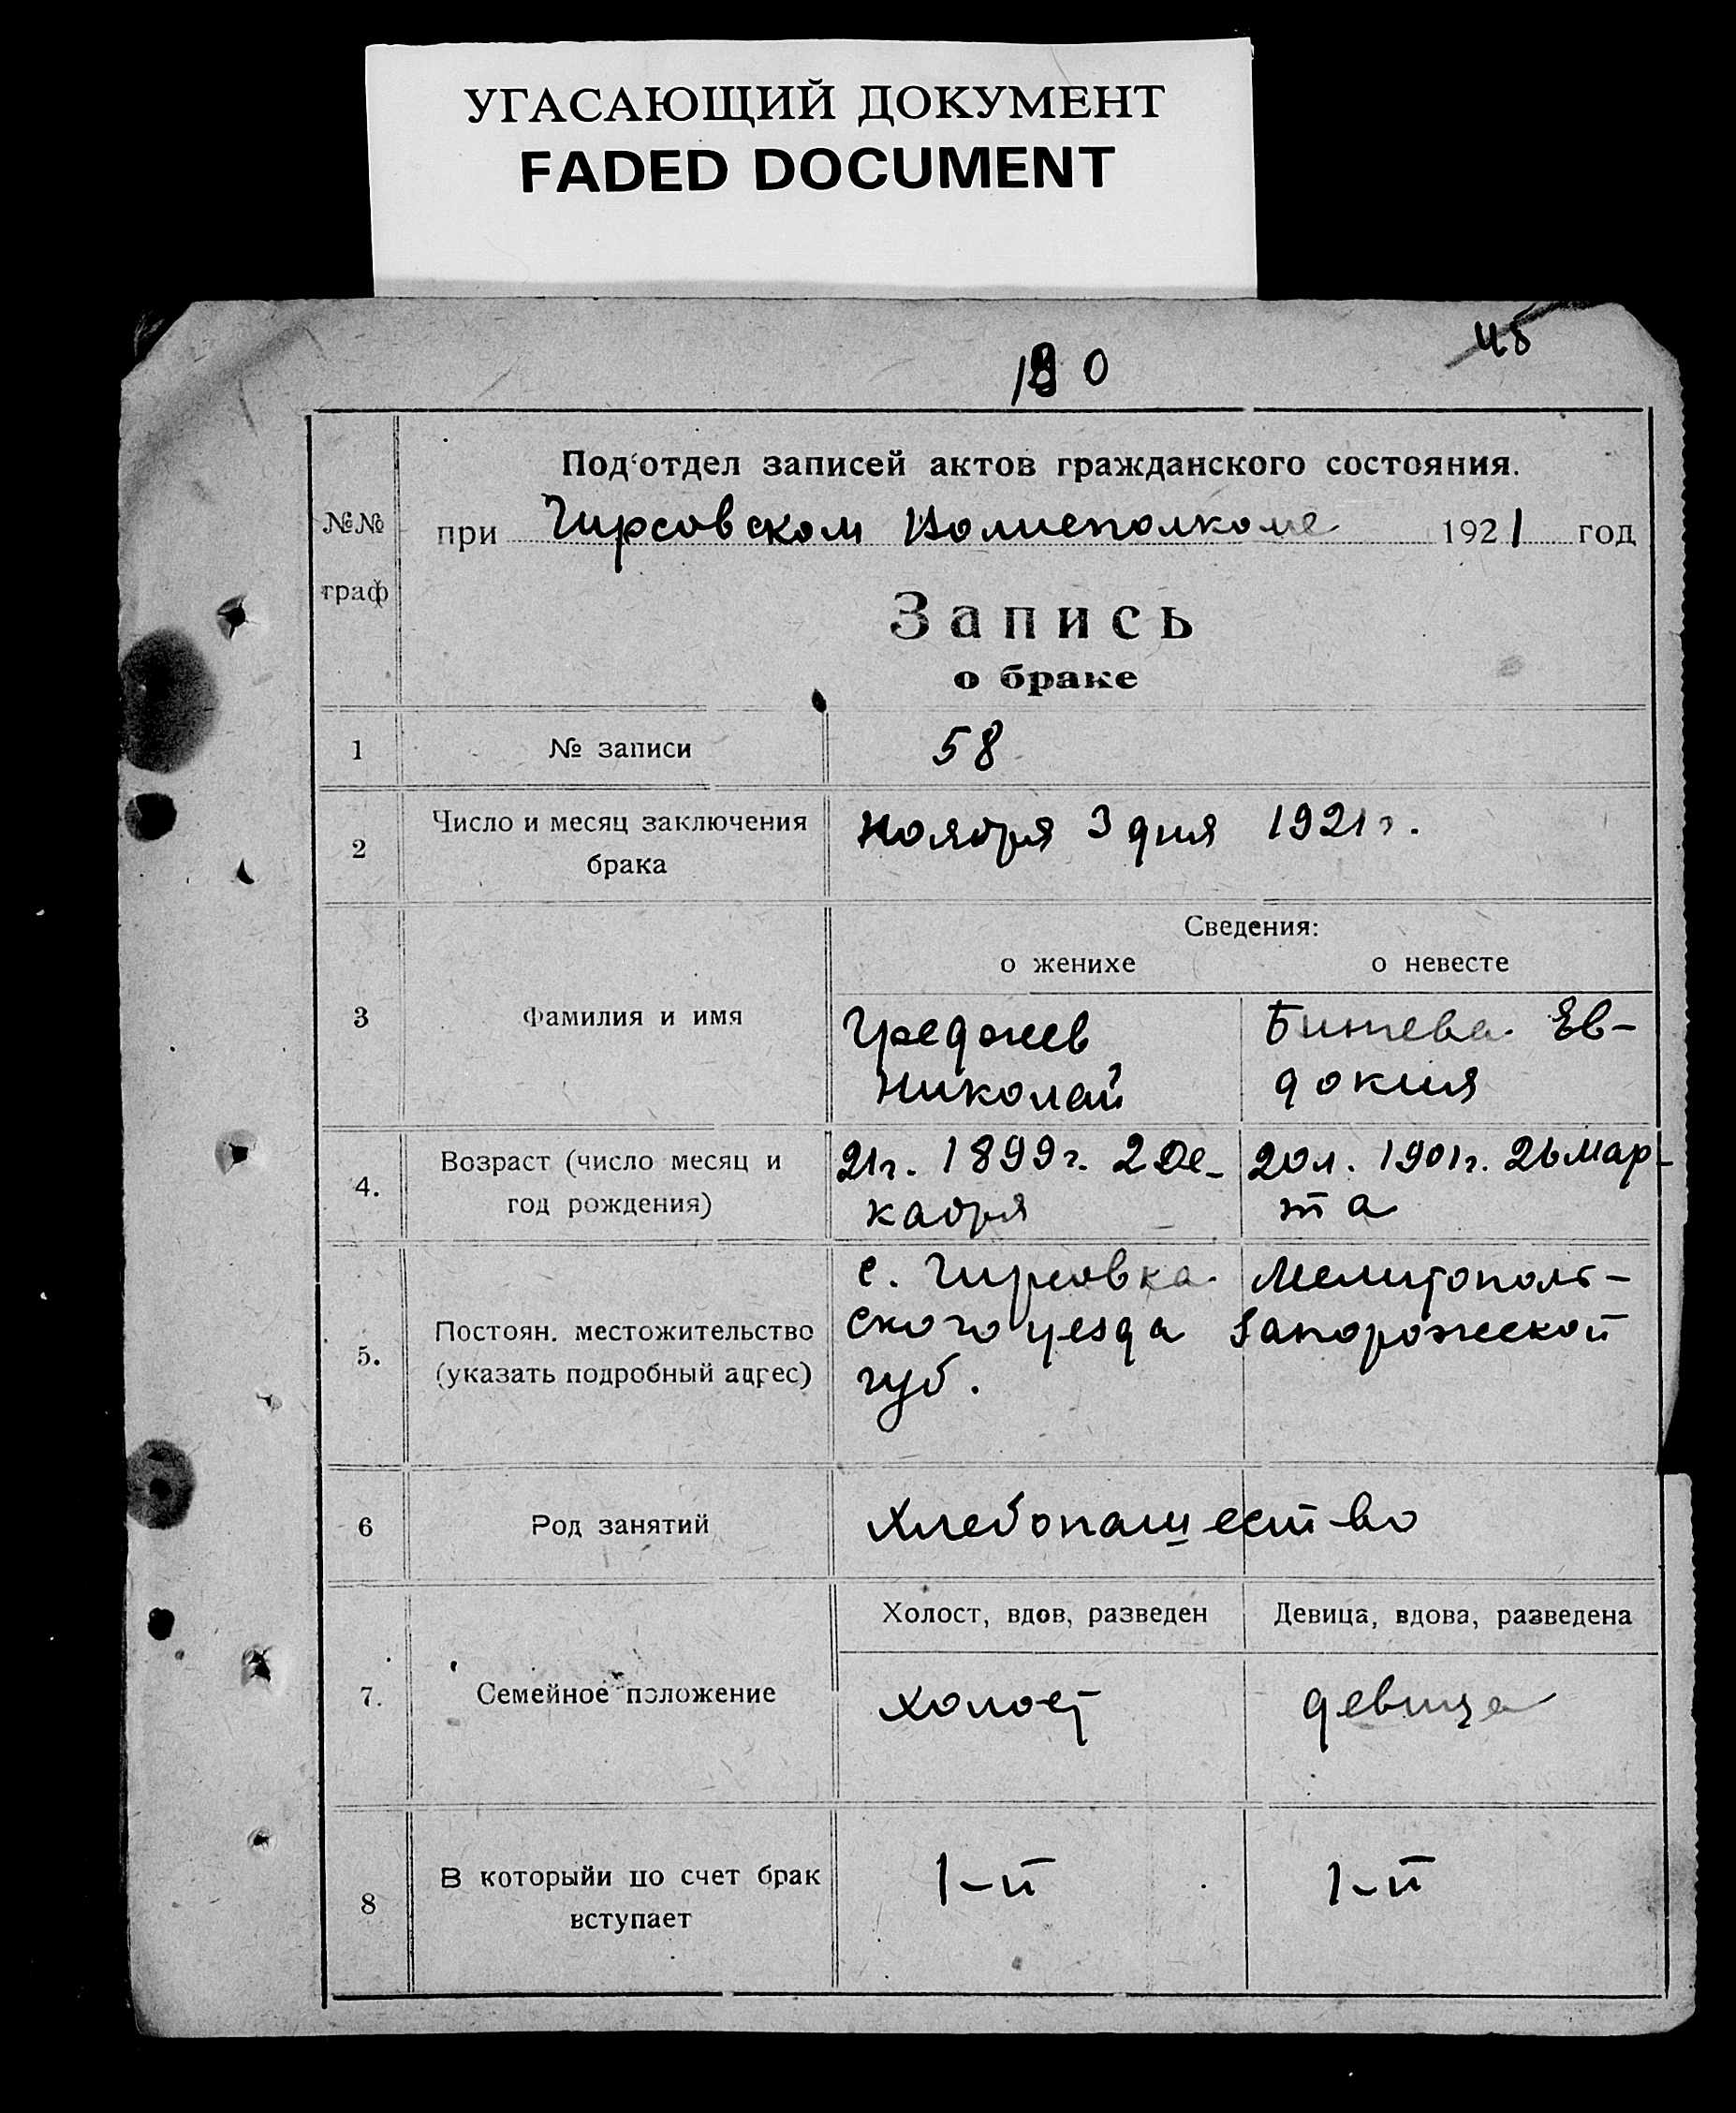 УГАСАЮЩИЙ ДОКУМЕНТ
FADED DOCUMENT
45
Подотдел записей актов гражданского состояния.
№№
граф
при Гирсовском Волисполкоме 1921 год
Запись
о браке
1 № записи 58
2 Число и месяц заключения брака
Ноября 3 дня 1921 г.
Сведения:
о женихе о невесте
3 Фамилия и имя
Греджев Бишева Ев-
Николай докия
4. Возраст (число месяц и
год рождения)
21 г. 1899 г. 2 Де- 20 л. 1901 г. 26 Мар-
кабря та
5. Постоян. местожительство
(указать подробный адрес)
с. Гирсовка Мелитополь-
ского уезда Запорожской
губ.
6 Род занятий Хлебопашество
Холост, вдов, разведен Девица, вдова, разведена
7. Семейное положение холост девица
8 В которыйи по счет брак
вступает
1-й 1-й